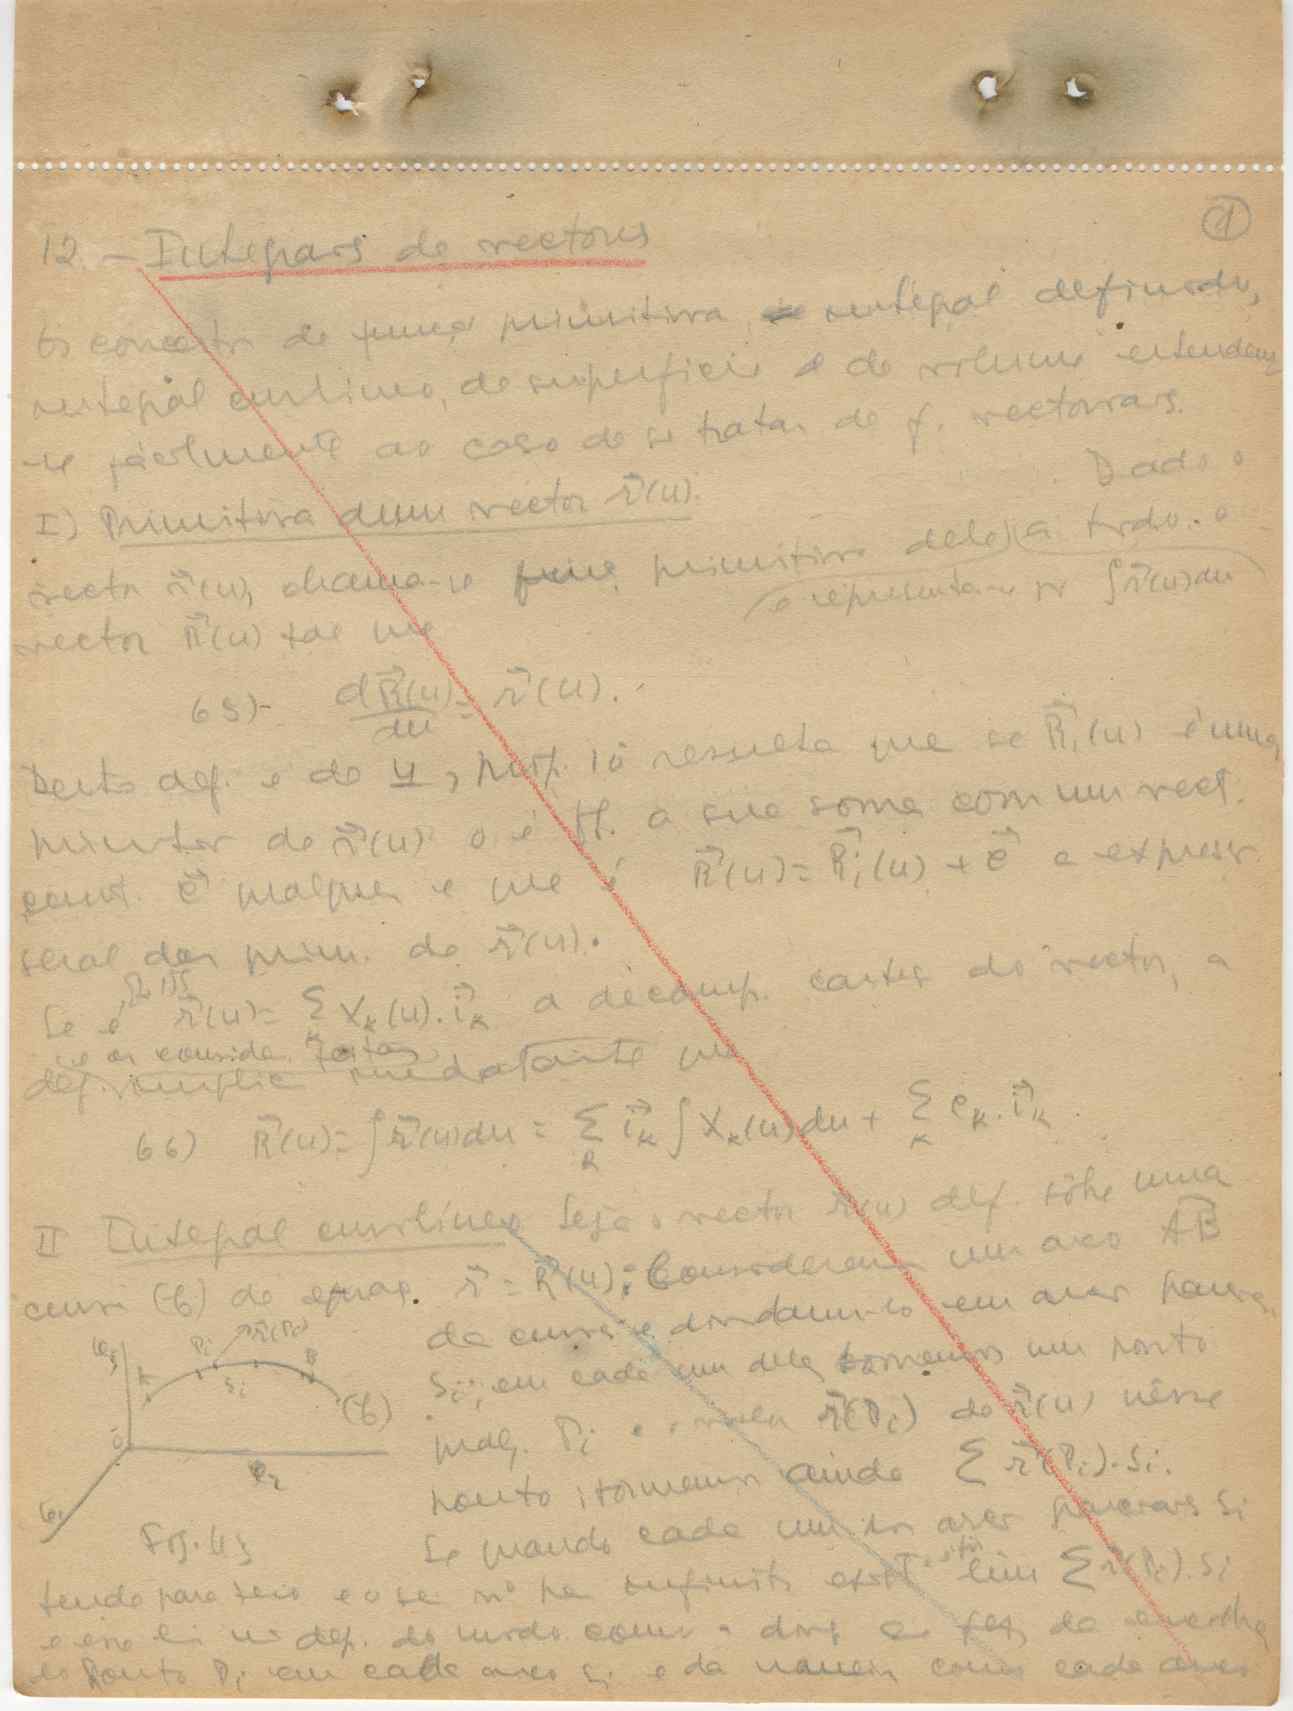 1
12 - Integrais de vectores
Os conceitos de função primitiva, integral definido,
integral curvilíneo, de superfície e de volume estendem
se fàcilmente ao caso de se tratar de f. vectoriais.
I) Primitiva dum vector r⃗(u). Dado o
vector r⃗(u), chama-se função primitiva dele a todo o
e representa-se por ∫r⃗(u)du
vector R⃗(u) tal que
65)- dR⃗(u)/du = r⃗(u).
Desta def. e de 4, prop. 1ª resulta que se R⃗₁(u) é uma
primitiva de r⃗(u) o é tb. a sua soma com um vect.
const. c⃗ qualquer e que é R⃗(u) = R⃗₁(u) + c⃗ a express.
geral das prim. de r⃗(u).
Se é r⃗(u) = Σ Xₖ(u). i⃗ₖ a decomp. cartes. do vector, a
def. implica imediatamente que
66) R⃗(u) = ∫r⃗(u)du = Σ i⃗ₖ ∫Xₖ(u)du + Σ cₖ. i⃗ₖ
II Integral curvilíneo Seja o vector r⃗(u) def. sôbre uma
curva (C) de equaç. r⃗ = R⃗(u); Consideremos um arco AB
da curva e dividamo-lo em arcos parc.
sᵢ; em cada um deles tomemos um ponto
qualq. Pᵢ e o valor r⃗(Pᵢ) de r⃗(u) nêsse
ponto; formemos ainda Σ r⃗(Pᵢ).sᵢ.
Pᵢ r⃗(Pᵢ)
A sᵢ B
(C)
O
Fig. 43
Se quando cada um dos arcos parciais sᵢ
tende para zero e o seu nº para infinito existe lim Σ r⃗(Pᵢ).sᵢ
e esse lim. não dep. do modo como a da escolha
do ponto Pᵢ em cada arco sᵢ e da maneira como cada arco